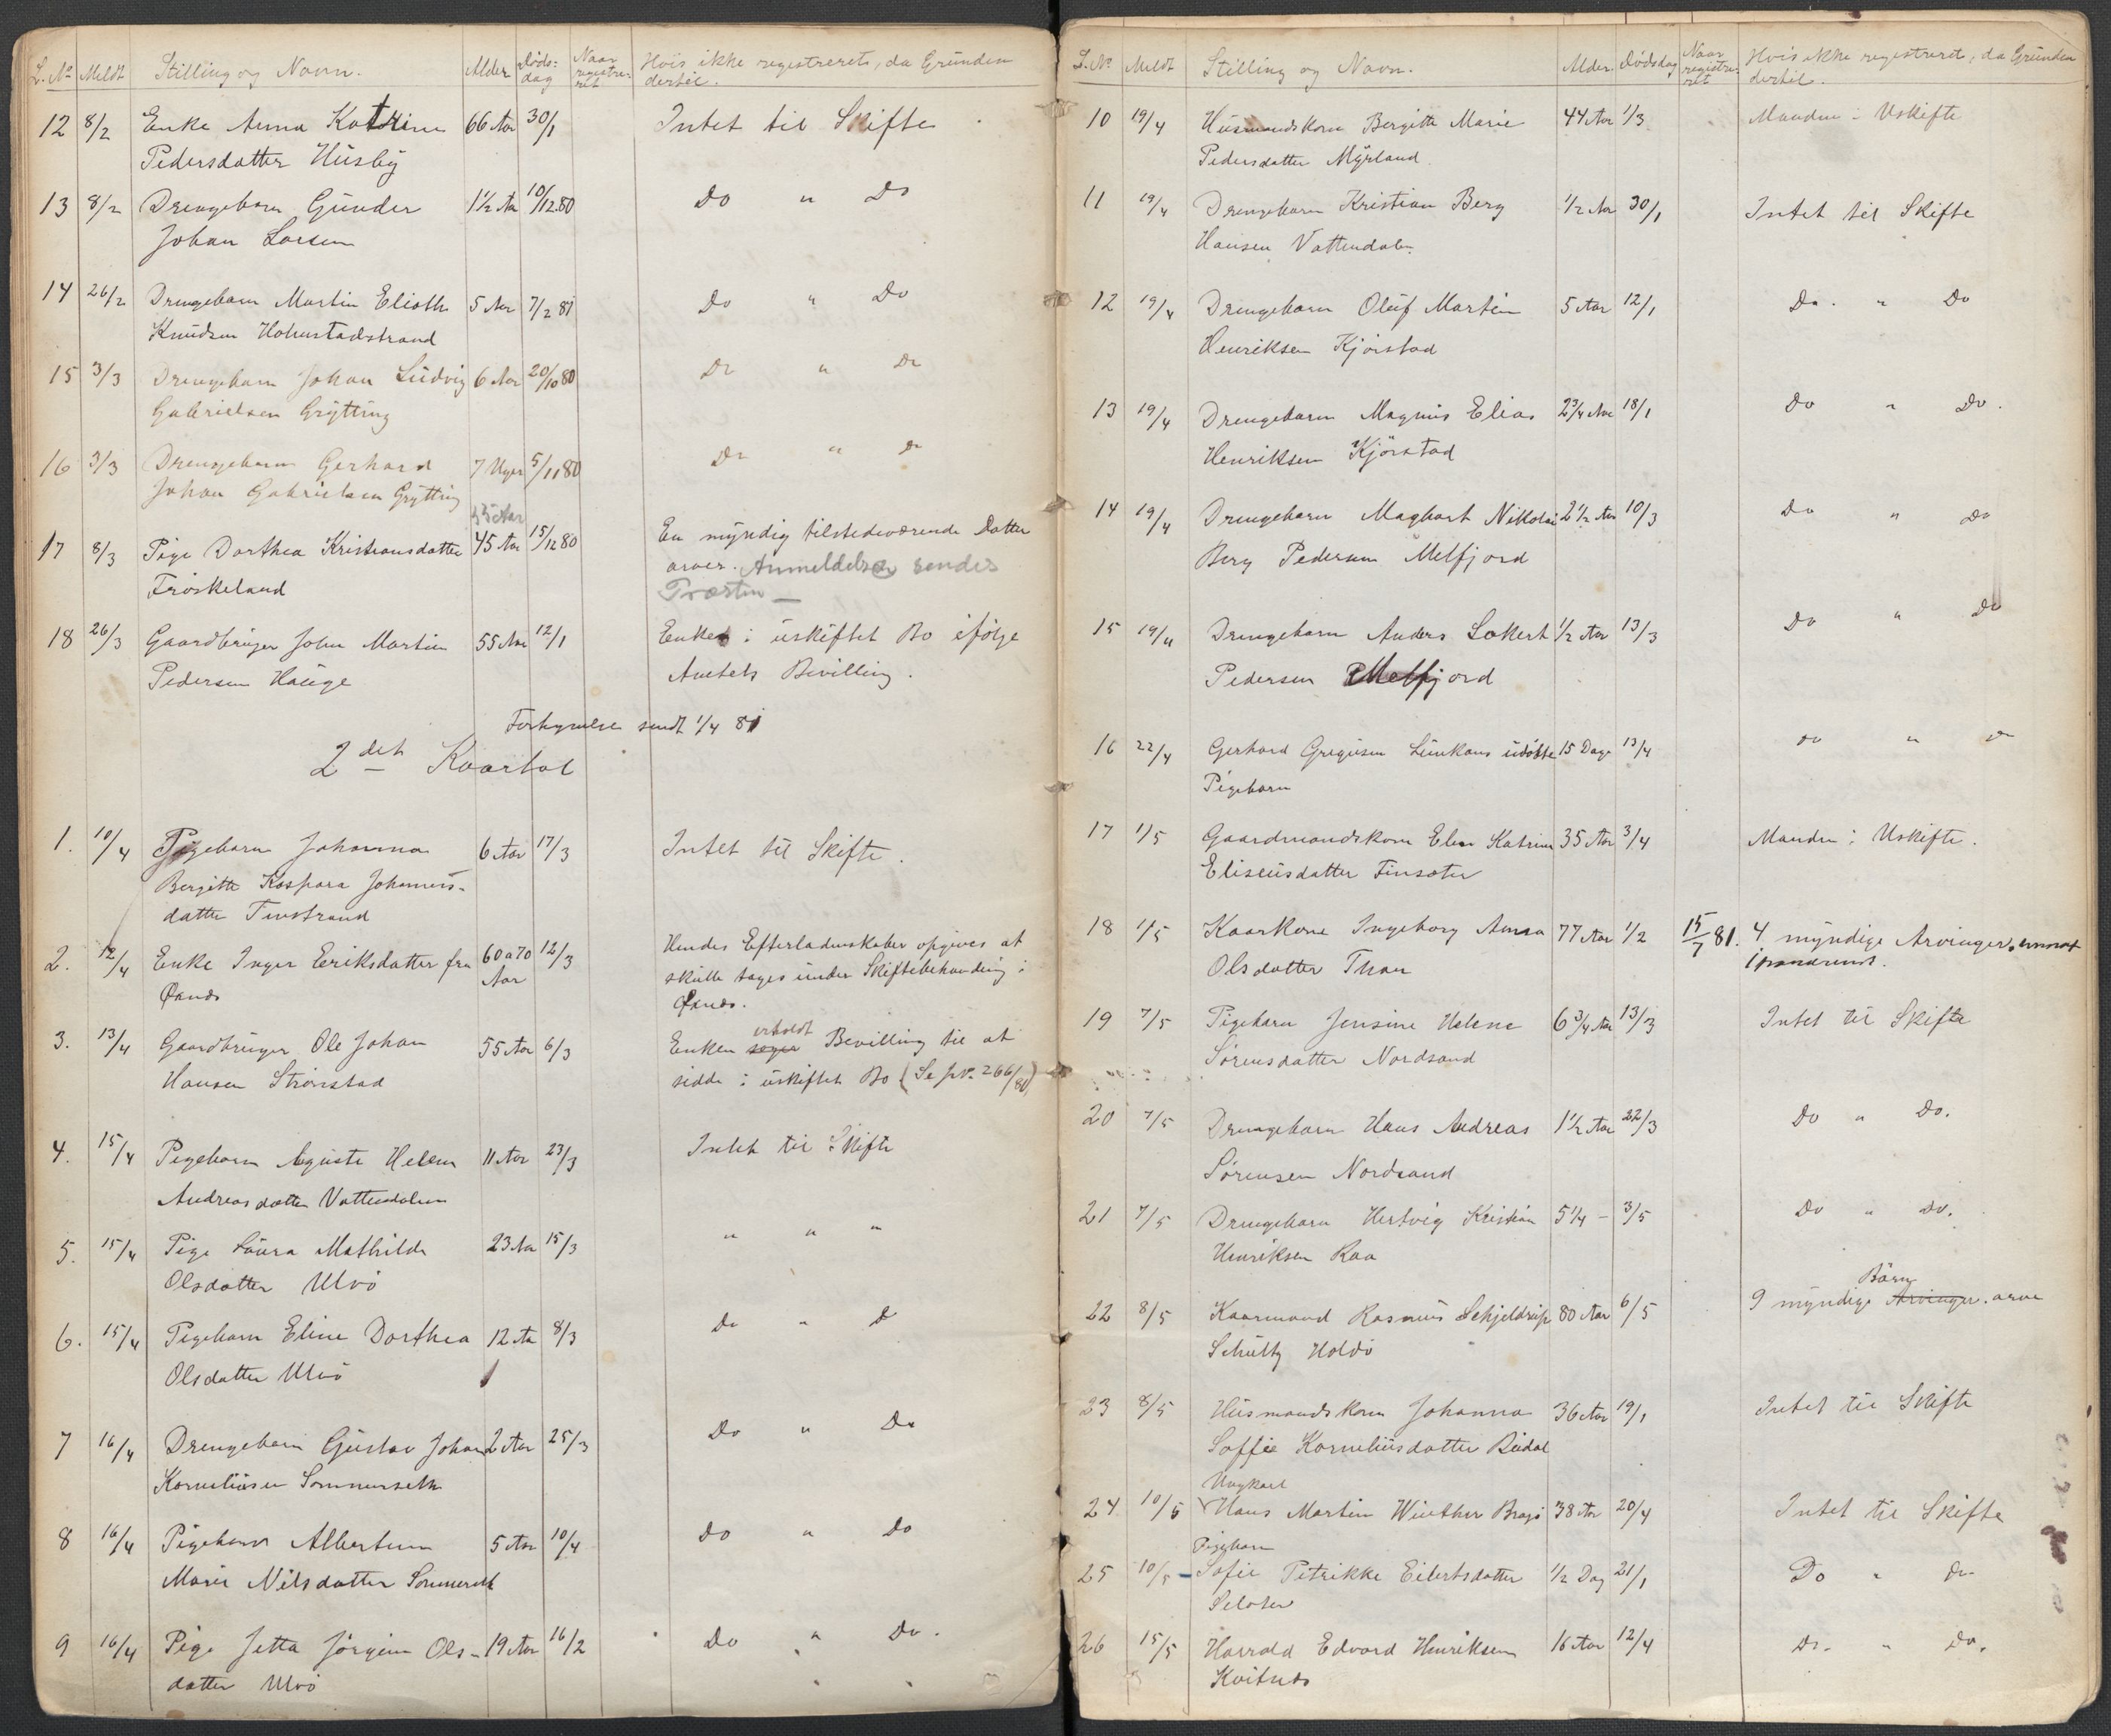 L. No Meldt Stilling og Navn. Alder Døds-dag Naar registre-ret Hvis ikke registreret, da Grunden dertil.
12 8/2 Enke Anna Katrine 66 Aar 30/1 Intet til Skifte
Pedersdatter Husby
13 8/2 Drengebarn Gunder 1½ Aar 10/12 80 Do " Do
Johan Larsen
14 26/2 Drengebarn Martin Elioth 5 Aar 7/2 81 Do " Do
Knudsen Holmstadstrand
15 3/3 Drengebarn Johan Ludvig 6 Aar 20/10 80 Do " Do
Gabrielsen Grytting
16 3/3 Drengebarn Gerhard 7 Uger 5/11 80 Do " Do
Johan Gabrielsen Grytting
55 Aar
17 8/3 Pige Dorthea Kristiansdatter 45 Aar 15/12 80 En myndig tilstedeværende Datter
Frøskeland arver. Anmeldelse sendes
Præsten —
18 26/3 Gaardbruger John Martin 55 Aar 12/1 Enken i uskiftet Bo ifølge
Pedersen Hauge Amtets Bevilling.
sendt 1/4 81
2det Kvartal
1. 10/4 Pigebarn Johanna 6 Aar 17/3 Intet til Skifte.
Bergitte Kaspara Johannes-
datter Finstrand
2. 12/4 Enke Inger Eriksdatter fra 60 a 70 Aar 12/3 Hendes Efterladenskaber opgives at
skulle tages under Skiftebehandling i
3. 13/4 Gaardbruger Ole Johan 55 Aar 6/3 Enken søger erholdt Bevilling til at
Hansen Strønstad sidde i uskiftet Bo (Se Jr. 266/80)
4. 15/4 Pigebarn Aguste Helene 11 Aar 23/3 Intet til Skifte
Andreasdatter Vottendalen
5. 15/4 Pige Laura Mathilde 23 Aar 15/3 " " "
Olsdatter Ulvø
6. 15/4 Pigebarn Eline Dorthea 12 Aar 8/3 Do " D
Olsdatter Ulvø
7 16/4 Drengebarn Gustav Johan 2 Aar 25/3 Do " Do
Korneliusen Sommerseth
8 16/4 Pigebarn Albertine 5 Aar 10/4 Do " Do
Marie Nilsdatter Sommerseth
9 16/4 Pige Jetta Jørgine Ols- 19 Aar 16/2 Do " Do.
datter Ulvø
L. No Meldt Stilling og Navn. Alder Dødsdag Naar registre-ret Hvis ikke registreret, da Grunden dertil.
10 19/4 Husmandskone Bergitte Marie 44 Aar 1/3 Manden i Uskifte
Pedersdatter Myrland
11 19/4 Drengebarn Kristian Berg ½ Aar 30/1 Intet til Skifte
Hansen Vottendalen
12 19/4 Drengebarn Oluf Martin 5 Aar 12/1 Do. " Do
Henriksen Kjørstad
13 19/4 Drengebarn Magnus Elias 2¾ Aar 18/1 Do " Do.
Henriksen Kjørstad
14 19/4 Drengebarn Maghart Nikolai 2½ Aar 10/3 Do " Do
Berg Pedersen Melfjord
15 19/4 Drengebarn Anders Lokert ½ Aar 13/3 Do " Do
Pedersen Melfjord
16 22/4 Gerhard Gregusen Lunkans udøbte 15 Dage 13/4 Do " Do
Pigebarn
17 1/5 Gaardmandskone Elen Katrine 35 Aar 3/4 Manden i Uskifte.
Eliseusdatter Finsæter
18 1/5 Kaarkone Ingeborg Anna 77 Aar 1/2 15/7 81. 4 myndige Arvinger,
Olsdatter Thon
19 7/5 Pigebarn Jensine Helene 6¾ Aar 13/3 Intet til Skifte
Sørensdatter Nordsand
20 7/5 Drengebarn Hans Andreas 1½ Aar 22/3 Do " Do.
Sørensen Nordsand
21 7/5 Drengebarn Hertvig Kristian 5¼ - 3/5 Do " Do.
Henriksen Raa
22 8/5 Kaarmand Rasmus Schjeldrup 80 Aar 6/5 9 myndige Arvinger Børn arve
Schultz Holdø
23 8/5 Husmandskone Johanna 36 Aar 19/1 Intet til Skifte
Soffie Korneliusdatter Budal
Ungkarl
24 10/5 Hans Martin Winther Bragø 38 Aar 20/4 Intet til Skifte
Pigebarn
25 10/5 Sofie Petrikke Eilertsdatter ½ Dag 21/1 Do " Do
26 15/5 Harrald Edvard Henriksen 16 Aar 12/4 Do. " Do.
Kvitnes